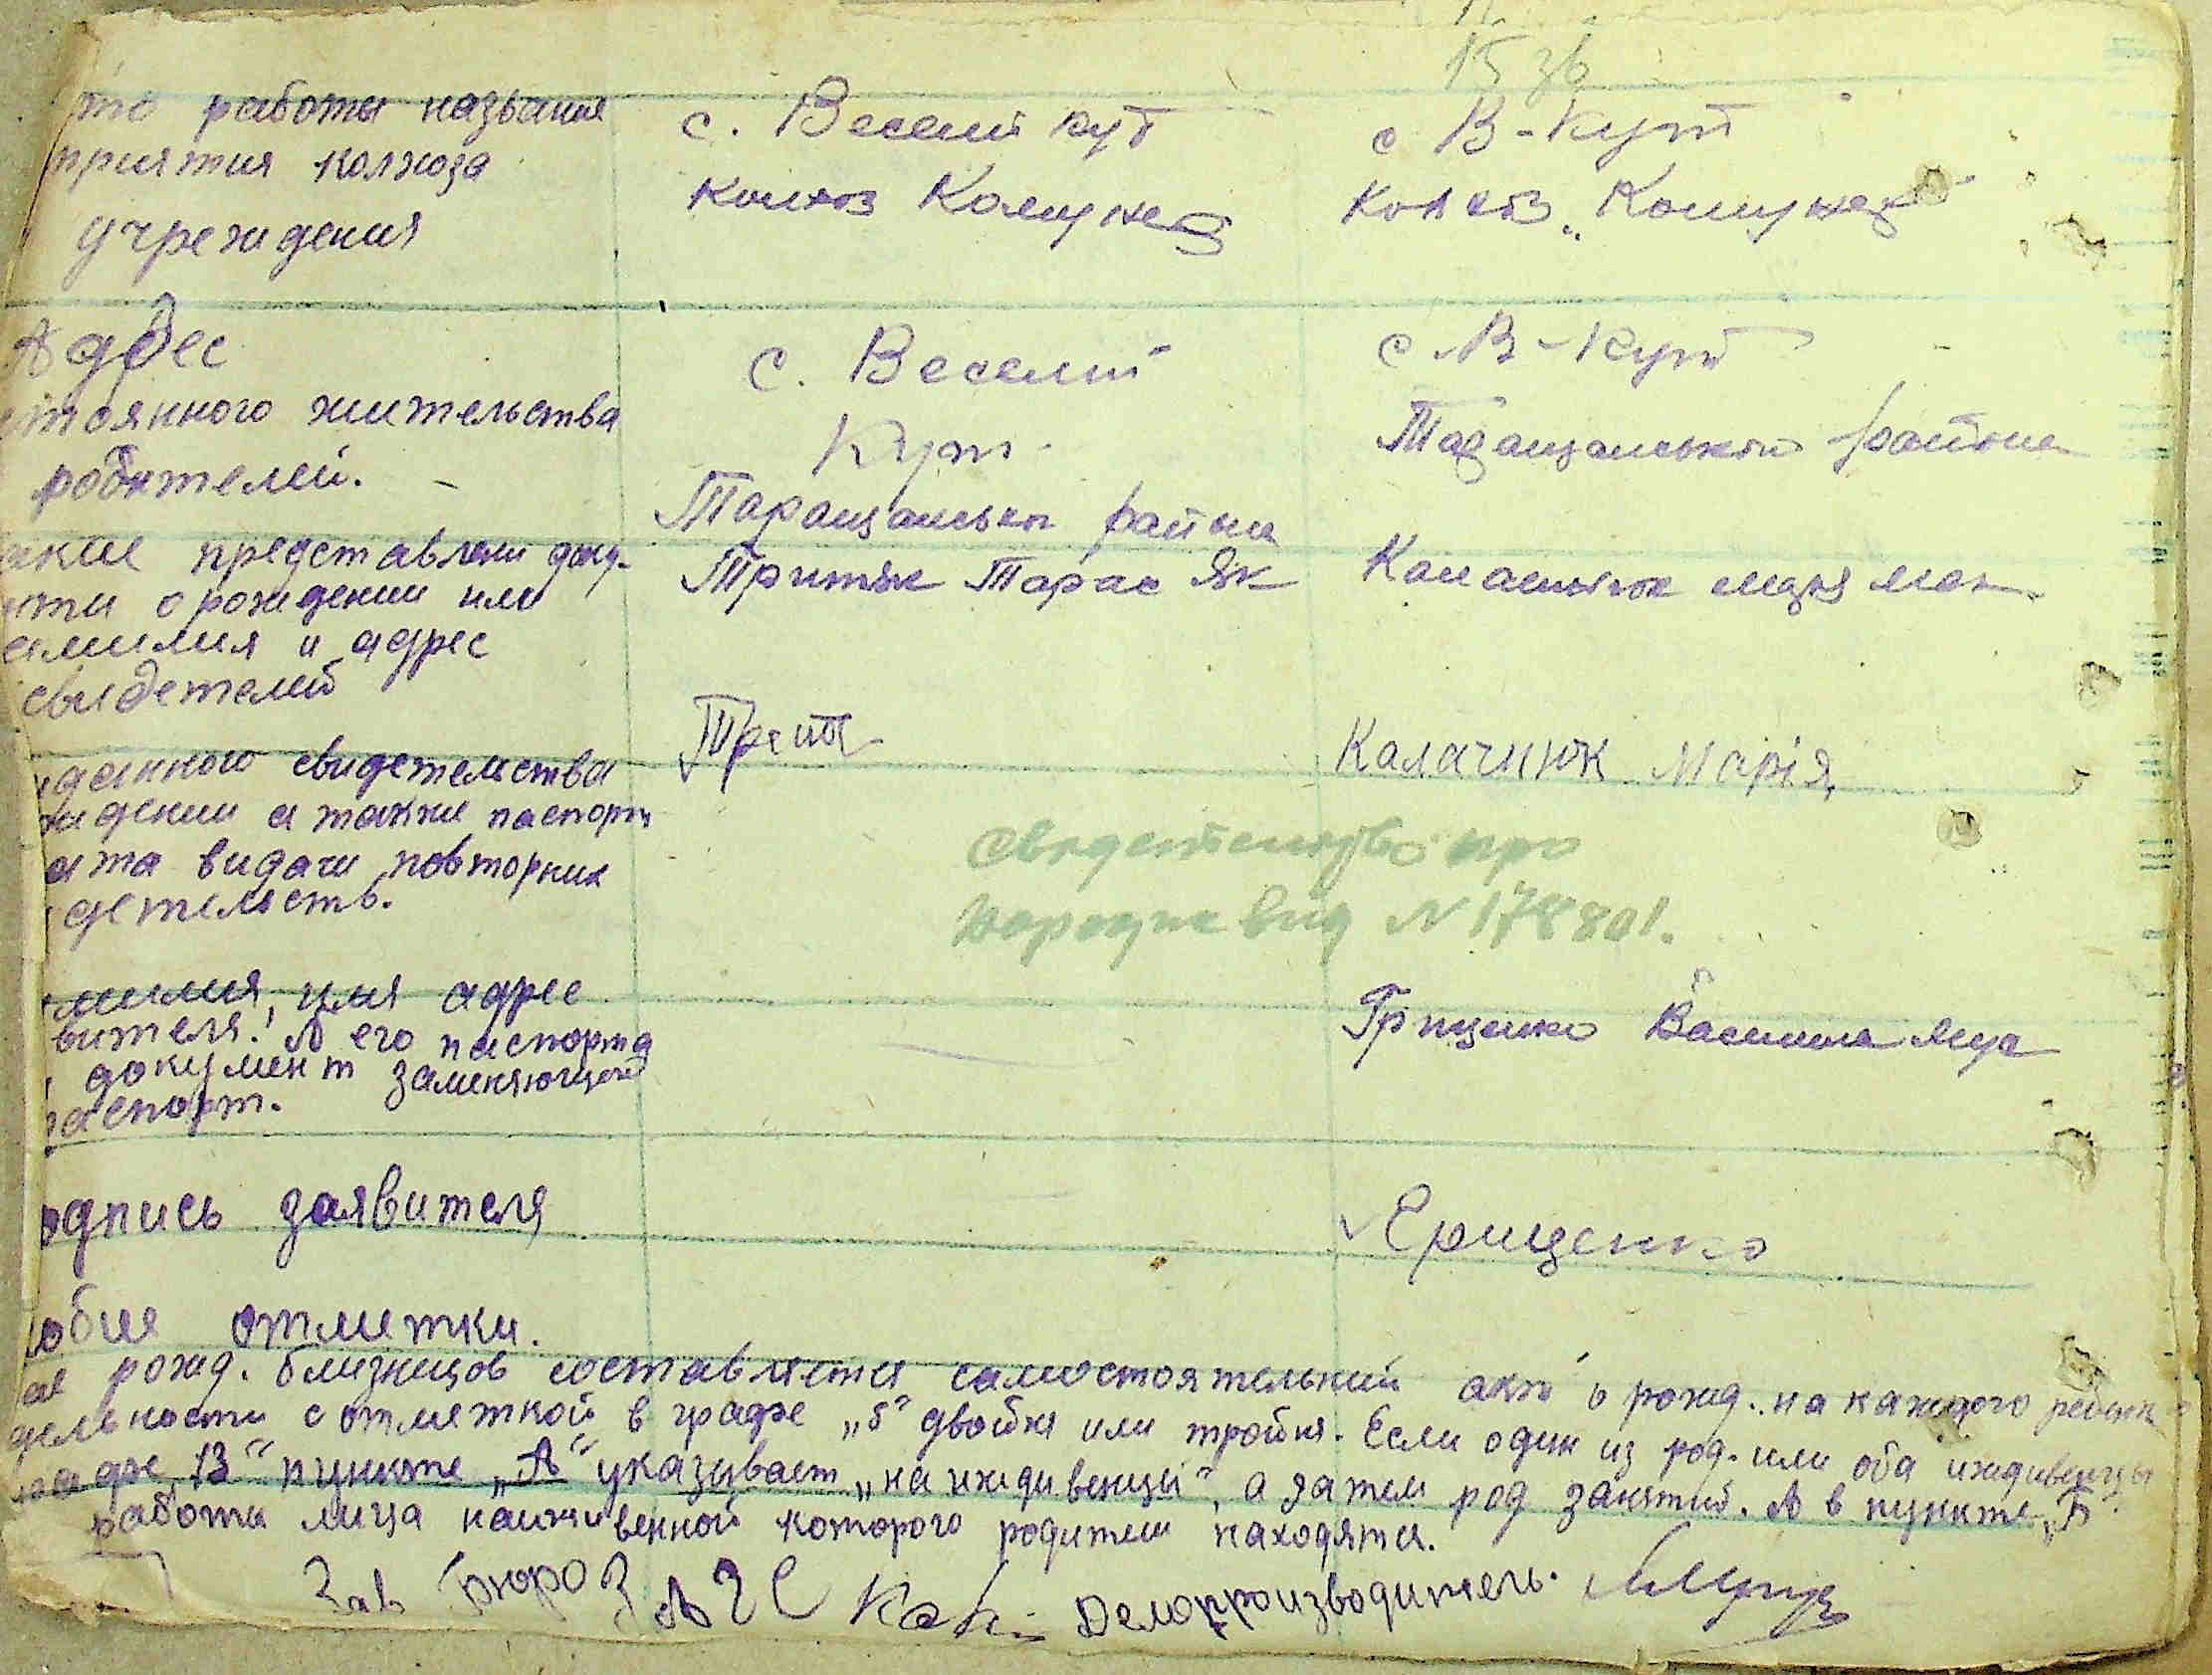 15 зв
то работы названия
приятия колхоза
учреждения
с. Веселий кут
колхоз Комунар
с В-Кут
колхоз „Комунар"
Адрес
тоянного жительства
родителей.
с. Веселий
Кут
Таращанськ района
с В-Кут
Таращанський района
акие представлени доку-
нти о рождении или
амилия и адрес
свидетелей
Притяк Тарас Як
Калачнюк
данного свидетельства
ждении а также паспорт
ата видачи повторних
детельств.
Калачнюк Марія
свидетельтво про
народж вид N 178801.
милия, имя адрес
вителя! А его паспорта
документ заменяющий
паспорт.
Грищенко Василина
одпись заявителя
Грищенко
обие отметки.
рожд. близнецов составляется самостоятельний акт о рожд. на каждого ребенк
дельности с отметкой в графе „5" двойня или тройня. Если один из род. или оба иждивенцы
графе 13" пункте „А" указывает „на иждивенци", а затем род занятий. А в пункте „Б"
работы лица на иждивенной которого родители находятся.
Зав Бюро ЗАГС Делопроизводитель.